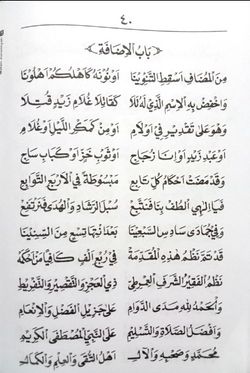 ٤٠
بَابُ الْإِضَافَةِ
مِنَ الْمُضَافِ أَسْقِطِ التَّنْوِينَا أَوْ نُونَهُ كَأَهْلُكُمْ أَهْلُونَا
وَاخْفِضْ بِهِ الْاِسْمَ الَّذِي لَهُ تَلَا كَقَاتِلَا غُلَامِ زَيْدٍ قُتِلَا
وَهْوَ عَلَى تَقْدِيرِ فِي أَوْ لَامِ أَوْ مِنْ كَمَكْرِ اللَّيْلِ أَوْ غُلَامِ
أَوْ عَبْدِ زَيْدٍ أَوْ إِنَا زُجَاجِ أَوْ ثَوْبِ خَزٍّ أَوْ كَبَابِ سَاجِ
وَقَدْ مَضَتْ أَحْكَامُ كُلِّ تَابِعِ مَبْسُوطَةً فِي الْأَرْبَعِ التَّوَابِعِ
فَيَا إِلٰهِي الْطُفْ بِنَا فَنَتَّبِعْ سُبْلَ الرَّشَادِ وَالْهُدَى فَنَرْتَفِعْ
وَفِي جُمَادَى سَادِسِ السَّبْعِينَا بَعْدَ انْتِهَا تِسْعٍ مِنَ الْمِئِينَا
قَدْ تَمَّ نَظْمُ هٰذِهِ الْمُقَدِّمَةْ فِي رُبْعِ أَلْفٍ كَافِيًا مَنْ أَحْكَمَهْ
نَظْمُ الْفَقِيرِ الشَّرَفِ الْعِمْرِيطِي ذِي الْعَجْزِ وَالتَّقْصِيرِ وَالتَّفْرِيطِ
وَالْحَمْدُ لِلّٰهِ مَدَى الدَّوَامِ عَلَى جَزِيلِ الْفَضْلِ وَالْإِنْعَامِ
وَأَفْضَلُ الصَّلَاةِ وَالتَّسْلِيمِ عَلَى النَّبِيِّ الْمُصْطَفَى الْكَرِيمِ
مُحَمَّدٍ وَصَحْبِهِ وَالْآلِ أَهْلِ التُّقَى وَالْعِلْمِ وَالْكَمَالِ